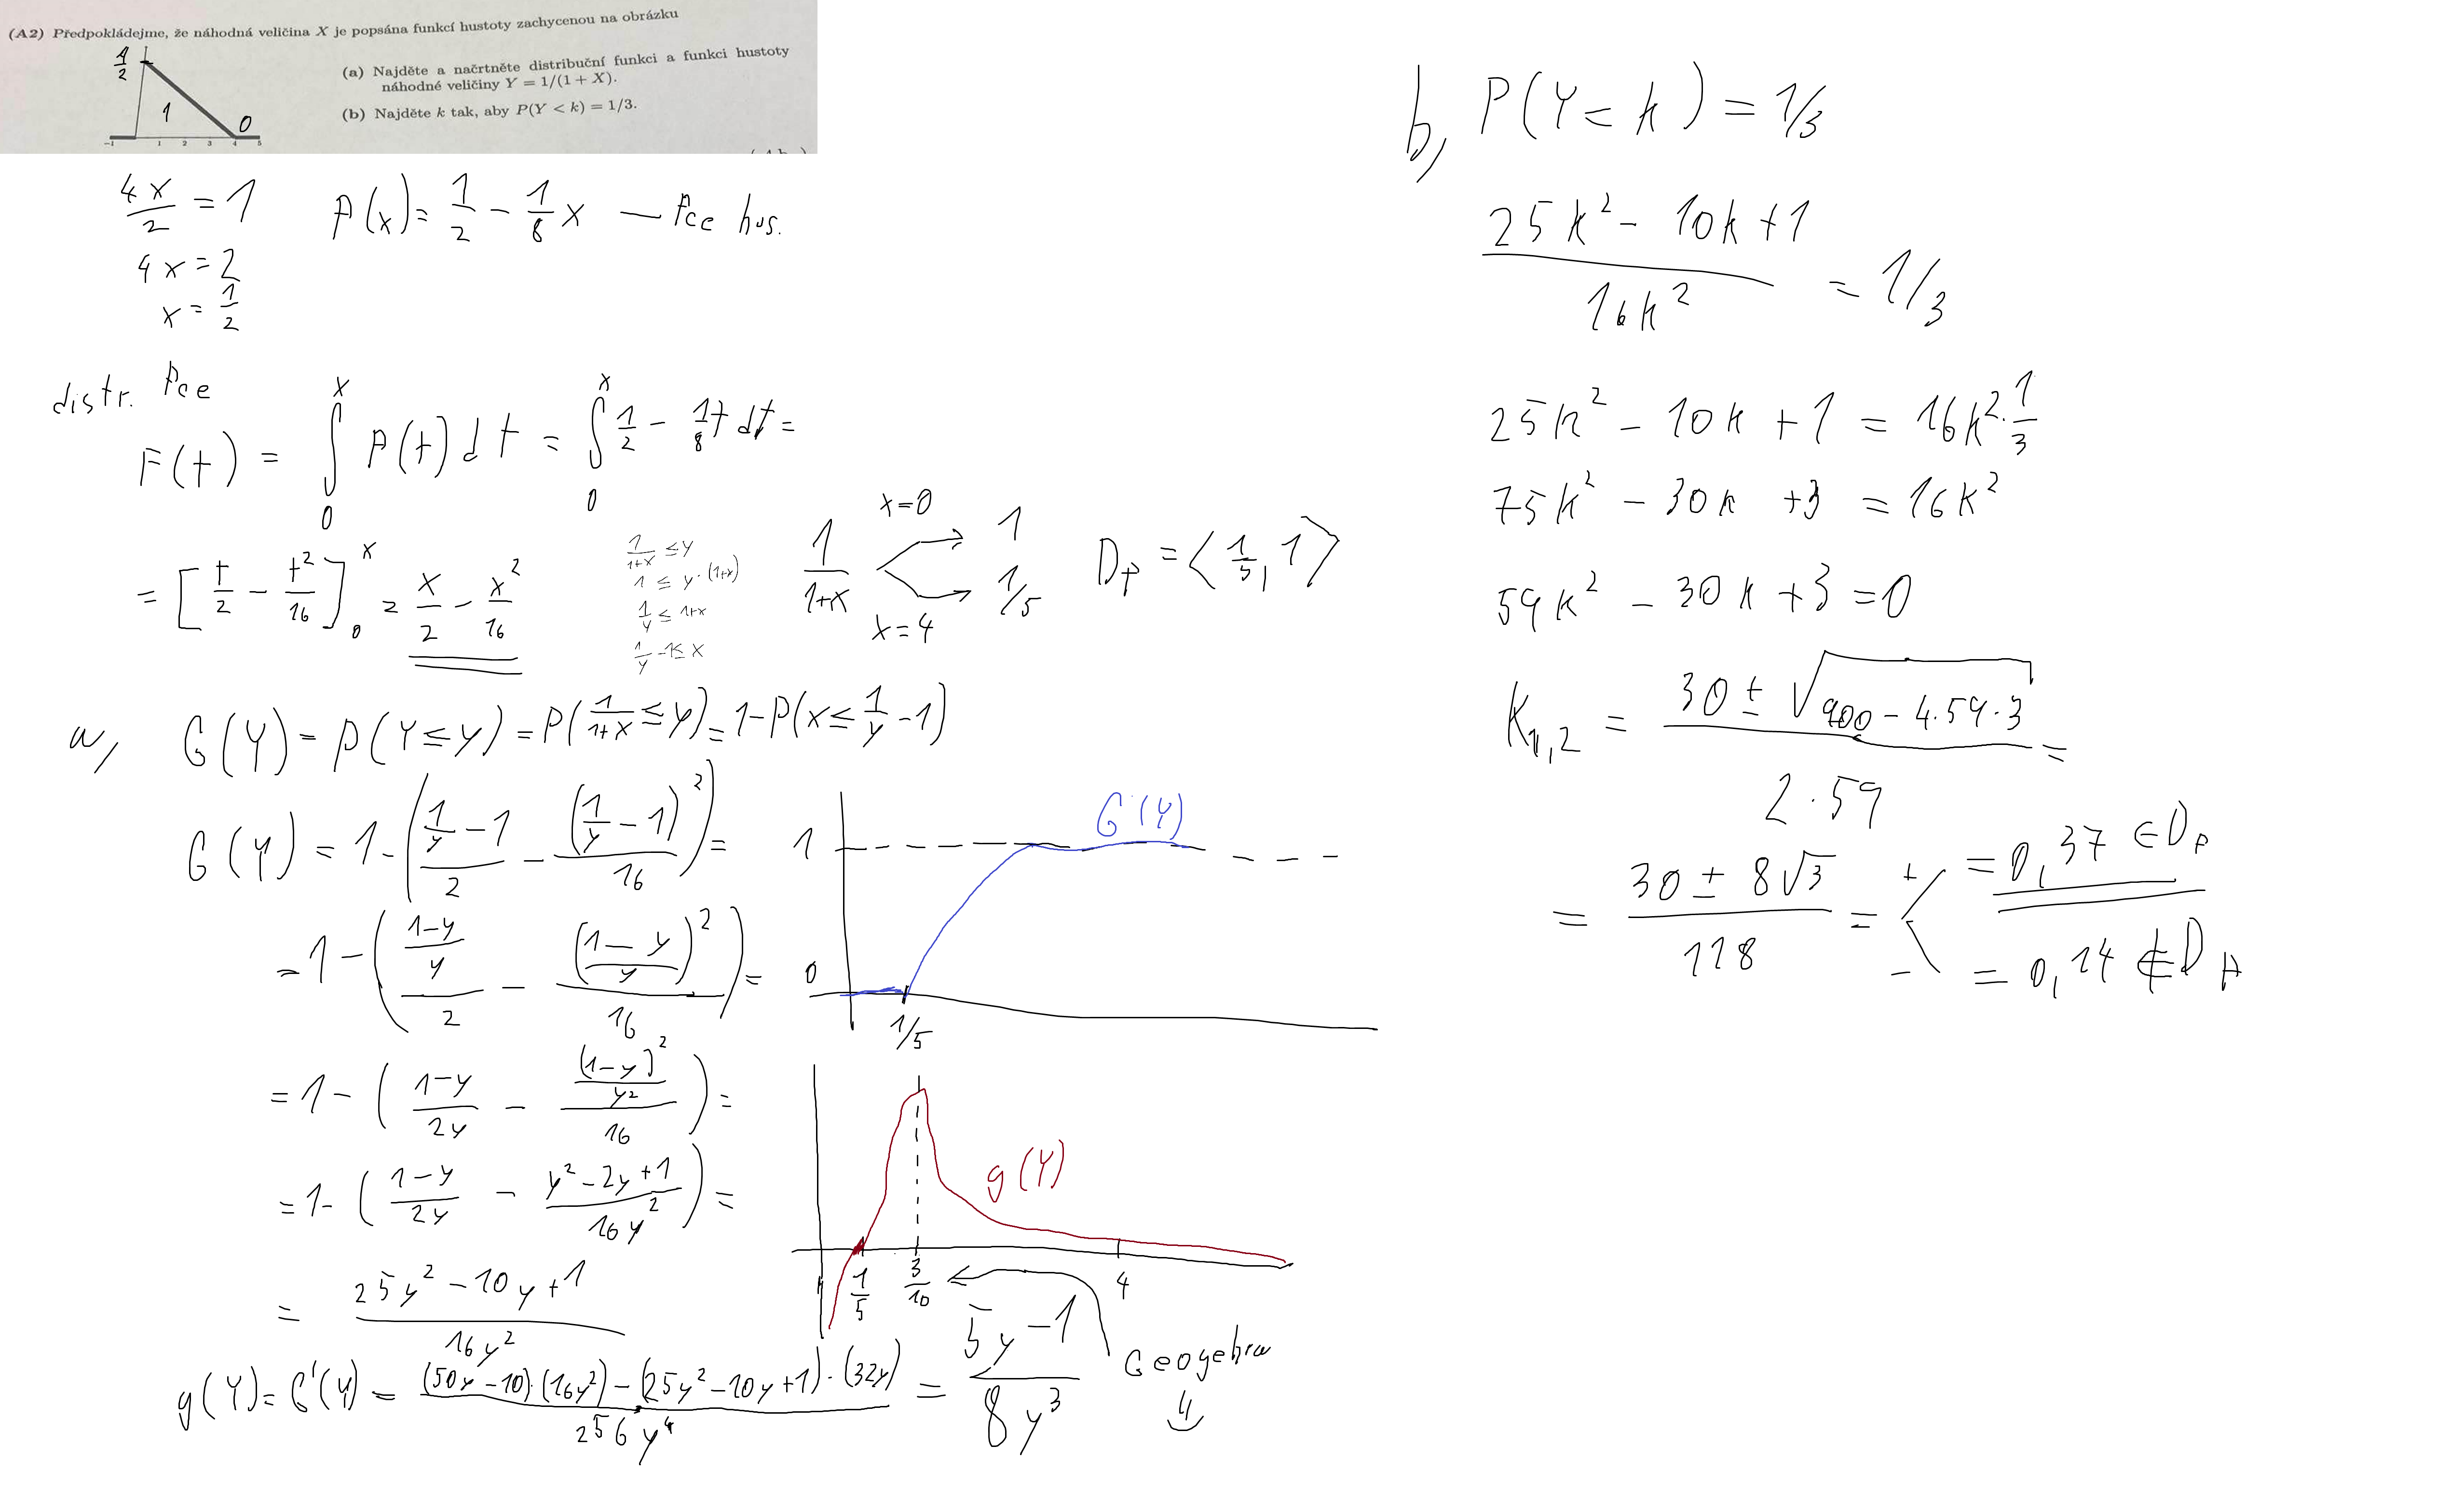 (A2) Předpokládejme, že náhodná veličina X je popsána funkcí hustoty zachycenou na obrázku
1/2
1
0
-1 1 2 3 4 5
(a) Najděte a načrtněte distribuční funkci a funkci hustoty
náhodné veličiny Y = 1/(1 + X).
(b) Najděte k tak, aby P(Y < k) = 1/3.
4x/2 = 1
4x = 2
x = 1/2
f(x) = 1/2 - 1/8 x — fce hus.
distr. fce
F(t) = ∫₀ˣ f(t) dt = ∫₀ˣ 1/2 - 1/8 t dt =
= [t/2 - t²/16]₀ˣ = x/2 - x²/16
1/(1+x) ≤ y
1 ≤ y·(1+x)
1/y ≤ 1+x
1/y - 1 ≤ x
1/(1+x)
x=0 → 1
x=4 → 1/5
Df = ⟨1/5, 1⟩
a, G(Y) = P(Y ≤ y) = P(1/(1+x) ≤ y) = 1-P(x ≤ 1/y - 1)
G(Y) = 1-((1/y - 1)/2 - (1/y - 1)²/16) =
= 1-(((1-y)/y)/2 - ((1-y)/y)²/16) =
= 1-((1-y)/2y - ((1-y)²/y²)/16) =
= 1-((1-y)/2y - (y²-2y+1)/16y²) =
= (25y² - 10y + 1)/16y²
g(Y) = G'(Y) = ((50y-10)·(16y²) - (25y²-10y+1)·(32y))/256y⁴ = (5y-1)/8y³
1
0
1/5
G(Y)
g(Y)
1/5 3/10 4
Geogebra
b, P(Y = k) = 1/3
(25k² - 10k + 1)/16k² = 1/3
25k² - 10k + 1 = 16k²·1/3
75k² - 30k + 3 = 16k²
59k² - 30k + 3 = 0
K1,2 = (30 ± √(900 - 4·59·3))/(2·59) =
= (30 ± 8√3)/118 =
+ = 0,37 ∈ Df
- = 0,14 ∉ Df